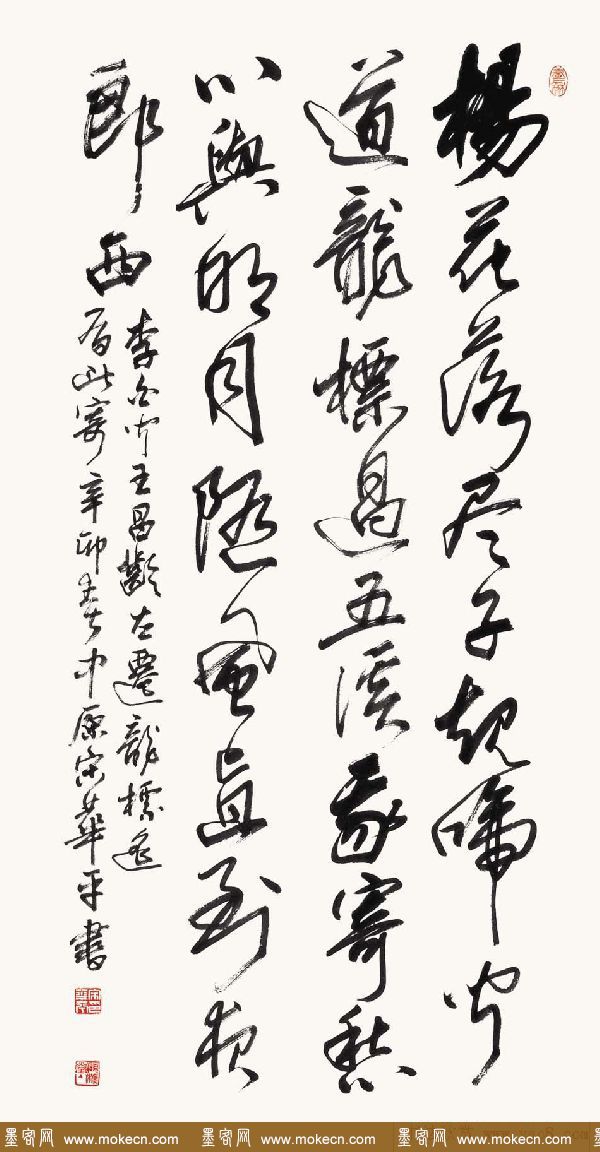 楊花落尽子規啼聞
道龍標過五溪我寄愁
心與明月随風直到夜
郎西
李白聞王昌齡左遷龍標遥
有此寄辛卯春中原宋華平書
墨客网 www.mokecn.com 墨客网 www.mokecn.com 墨客网 www.mokecn.com